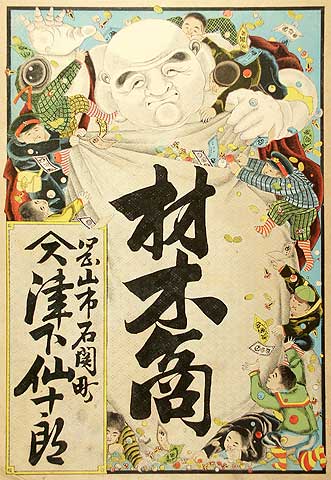 材木商
岡山市石関町
津下仙十郎